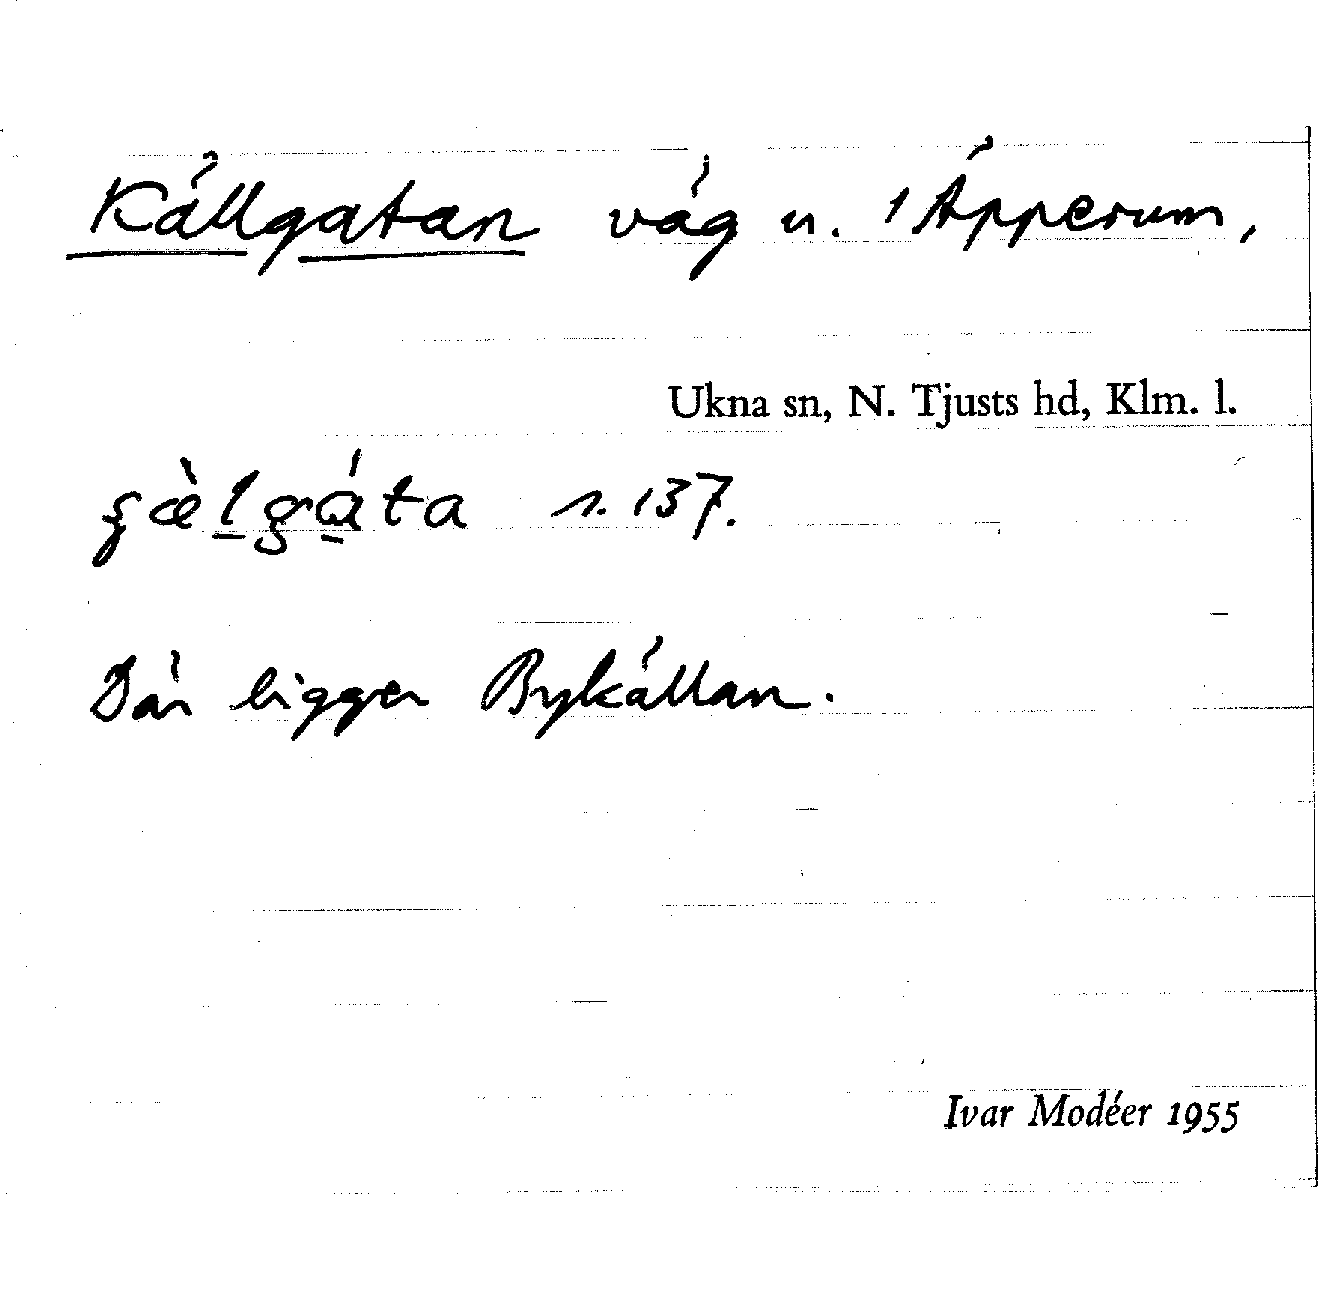 Källgatan väg u. 'Äpperum,
Ukna sn, N. Tjusts hd, Klm. l.
s. 137.
Där ligger Bykällan.
Ivar Modéer 1955